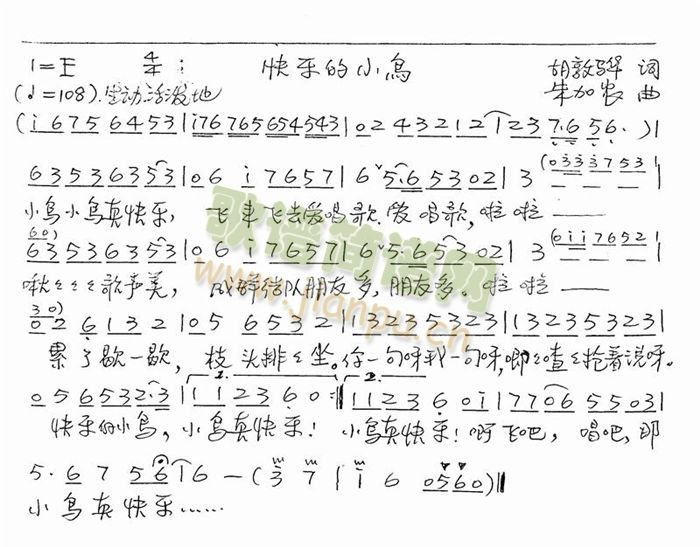 1=E 4/4 快乐的小鸟 胡敦骅 词
(♩=108) 生动活泼地 朱加农 曲
(i 6 7 5 6 4 5 3 | i 7 6 7 6 5 6 5 4 5 4 3 | 0 2 4 3 2 1 2 1 2 3 7·6 5 6· ) |
6 3 5 3 6 3 5 3 | 0 6 i 7 6 5 7 | 6 5·6 5 3 0 2 | 3 (0 3 3 3 7 5 3 |
小鸟小鸟真快乐, 飞来飞去爱唱歌,爱唱歌,啦啦——
6 0)
6 3 5 3 6 3 5 3 | 0 6 i 7 6 5 7 | 6 5·6 5 3 0 2 | 3 (0 i i 7 6 5 2 |
啾〻〻〻歌声美, 成群结队朋友多,朋友多。啦啦——
3 0)
0 2 6 1 3 2 | 0 5 6 5 3 2 | 1 3 2 3 5 3 2 3 | 1 3 2 3 5 3 2 3 |
累了歇一歇, 枝头排〻坐。你一句呀我一句呀,唧〻喳〻抢着说呀。
1. 2.
0 5 6 5 3 2·3 | 1 1 2 3 6 0 :‖ 1 1 2 3 6 0 i | 7 7 0 6 5 5 0 3 |
快乐的小鸟, 小鸟真快乐! 小鸟真快乐!啊飞吧, 唱吧,即
5· 6 7 5 6 i 6 — (3 7 | i 6 0 5 6 0)‖
小鸟真快乐……
歌谱简谱网
www.jianpu.cn